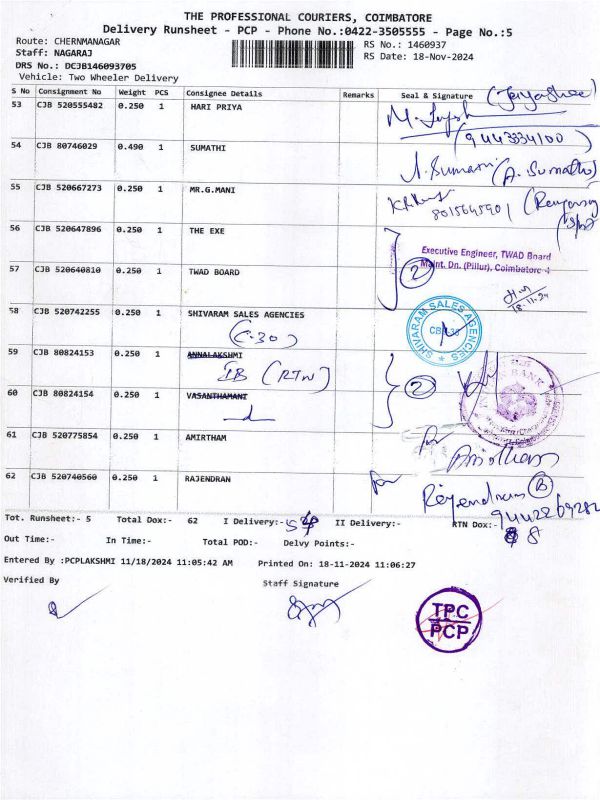 THE PROFESSIONAL COURIERS, COIMBATORE
Delivery Runsheet - PCP - Phone No.:0422-3505555 - Page No.:5
Route: CHERNMANAGAR RS No.: 1460937
Staff: NAGARAJ RS Date: 18-Nov-2024
DRS No.: DCJB146093705
Vehicle: Two Wheeler Delivery
S No Consignment No Weight PCS Consignee Details Remarks Seal & Signature
53 CJB 520555482 0.250 1 HARI PRIYA
(9443334100)
54 CJB 80746029 0.490 1 SUMATHI
A. Sumathi (A. Sumathi)
55 CJB 520667273 0.250 1 MR.G.MANI
8015645901
56 CJB 520647896 0.250 1 THE EXE
Executive Engineer, TWAD Board
Maint. Dn. (Pillur), Coimbatore-4
2
57 CJB 520640810 0.250 1 TWAD BOARD
18.11.24
58 CJB 520742255 0.250 1 SHIVARAM SALES AGENCIES
(C-30)
SHIVARAM SALES AGENCIES
59 CJB 80824153 0.250 1 ANNALAKSHMI
IB (RTN)
2
60 CJB 80824154 0.250 1 VASANTHAMANI
61 CJB 520775854 0.250 1 AMIRTHAM
for Amirtham
62 CJB 520740560 0.250 1 RAJENDRAN
for Rajendran B
9442269282
Tot. Runsheet:- 5 Total Dox:- 62 I Delivery:- 54 II Delivery:- RTN Dox:- 8
Out Time:- In Time:- Total POD:- Delvy Points:-
Entered By :PCPLAKSHMI 11/18/2024 11:05:42 AM Printed On: 18-11-2024 11:06:27
Verified By Staff Signature
TPC
PCP